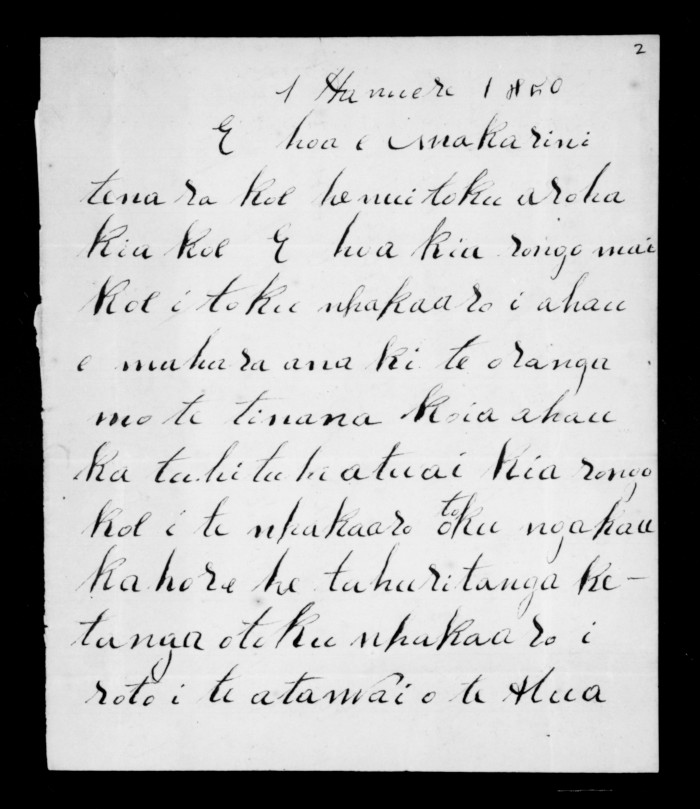 2
1 Hanuere 1850
E hoa e Makarini
tena ra koe he nui toku aroha
kia koe E hoa kia rongo mai
koe i toku whakaaro i ahau
e mahara ana ki te oranga
mo te tinana koia ahau
ka tuhituhi atu ai kia rongo
koe i te whakaaro toku ngakau
kahore he tahuritanga ke-
tanga o toku whakaaro i
roto i te atawai o te Atua